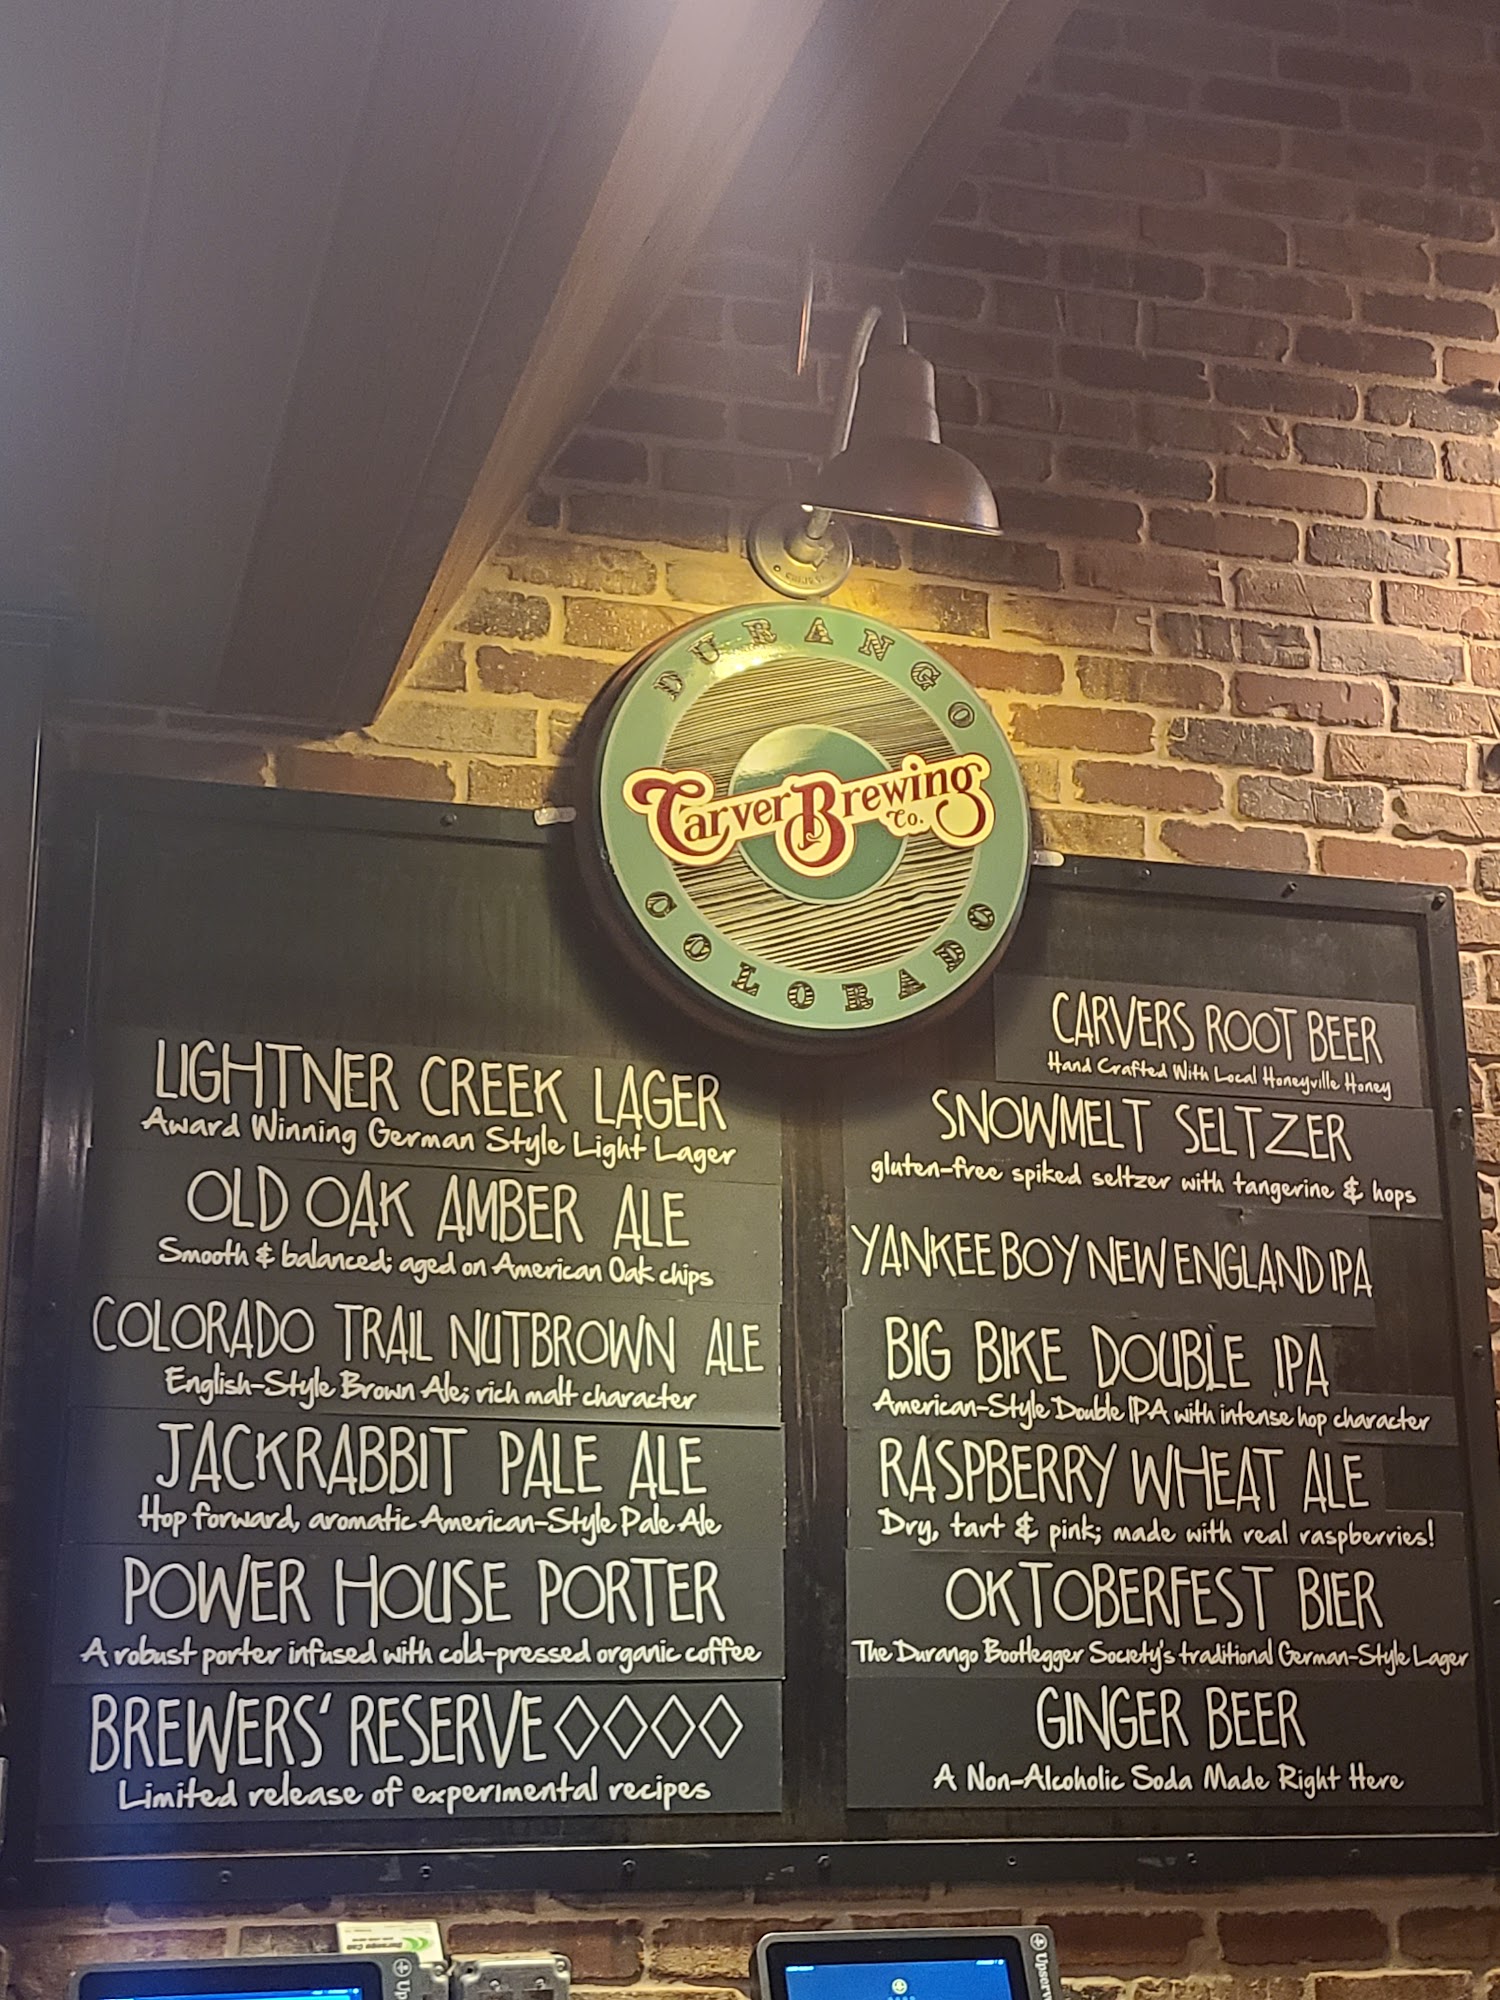 DURANGO
Carver Brewing Co.
COLORADO
LIGHTNER CREEK LAGER
Award Winning German Style Light Lager
OLD OAK AMBER ALE
Smooth & balanced; aged on American Oak chips
COLORADO TRAIL NUTBROWN ALE
English-Style Brown Ale; rich malt character
JACKRABBIT PALE ALE
Hop forward, aromatic American-Style Pale Ale
POWER HOUSE PORTER
A robust porter infused with cold-pressed organic coffee
BREWERS' RESERVE ◇◇◇◇
Limited release of experimental recipes
CARVERS ROOT BEER
Hand Crafted With Local Honeyville Honey
SNOWMELT SELTZER
gluten-free spiked seltzer with tangerine & hops
YANKEE BOY NEW ENGLAND IPA
BIG BIKE DOUBLE IPA
American-Style Double IPA with intense hop character
RASPBERRY WHEAT ALE
Dry, tart & pink; made with real raspberries!
OKTOBERFEST BIER
The Durango Bootlegger Society's traditional German-Style Lager
GINGER BEER
A Non-Alcoholic Soda Made Right Here
Durango Cab